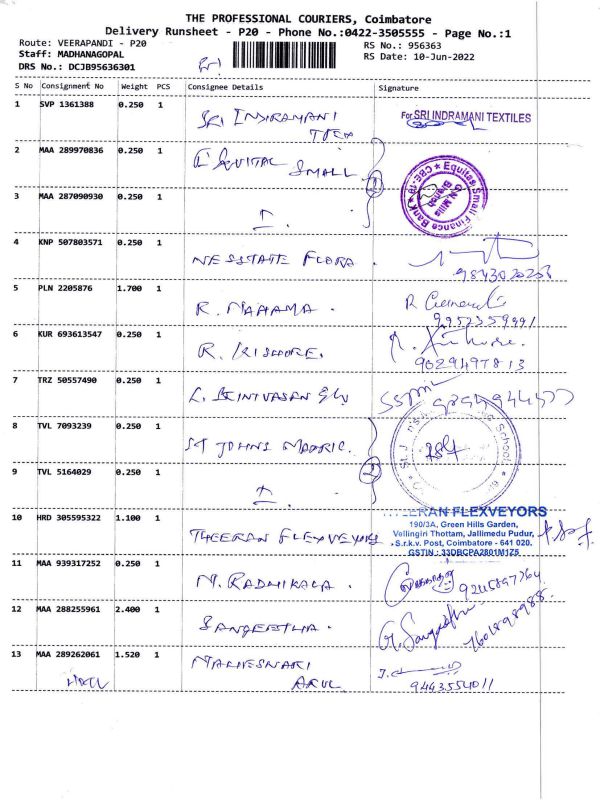 THE PROFESSIONAL COURIERS, Coimbatore
Delivery Runsheet - P20 - Phone No.:0422-3505555 - Page No.:1
Route: VEERAPANDI - P20
RS No.: 956363
Staff: MADHANAGOPAL
RS Date: 10-Jun-2022
DRS No.: DCJB95636301
S No Consignment No Weight PCS Consignee Details Signature
1 SVP 1361388 0.250 1 SRI INDIRAMANI TTEX For SRI INDRAMANI TEXTILES
2 MAA 289970836 0.250 1 EQUITAL SMALL
Equitas Small Finance Bank ★ CBE-19 ★
G.N Mills Branch
3 MAA 287090930 0.250 1
4 KNP 507803571 0.250 1 NESSTATE FLORA
5 PLN 2205876 1.700 1 R. MAHAMA.
9952359991
6 KUR 693613547 0.250 1 R. KISHORE.
9029497813
7 TRZ 50557490 0.250 1
8 TVL 7093239 0.250 1 ST JOHNS MATRIC.
9 TVL 5164029 0.250 1
10 HRD 305595322 1.100 1 THEERAN FLEXVEYORS
FLEXVEYORS
190/3A, Green Hills Garden,
Vellingiri Thottam, Jallimedu Pudur,
S.r.k.v. Post, Coimbatore - 641 020.
GSTIN : 33DBCPA2801M1Z5
11 MAA 939317252 0.250 1 N. RADHIKALA. 9245897264
12 MAA 288255961 2.400 1 SANGEETHA. G. Sangeetha 7601898988
13 MAA 289262061 1.520 1 MAHESWARI
ARUL
9443554011